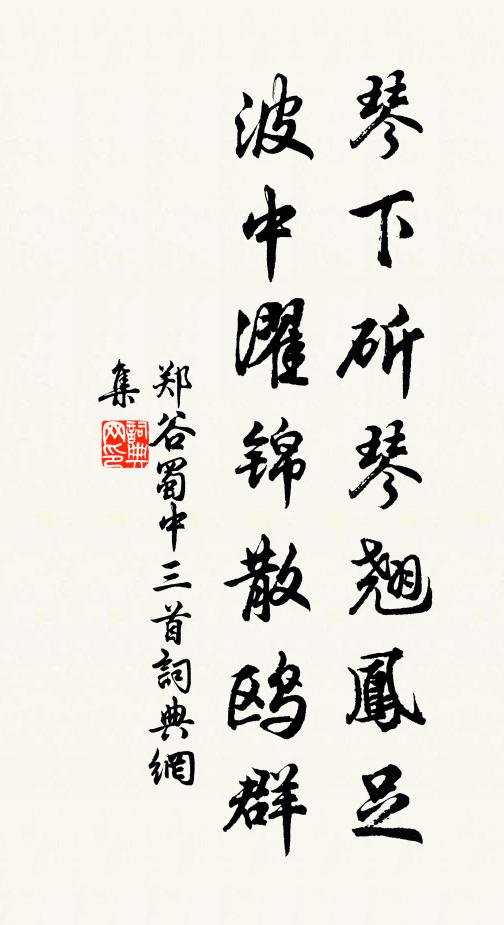 琴下斫琴翘鳳足
波中濯锦散鸥群
郑谷蜀中三首詞典網
集
詞典
网印